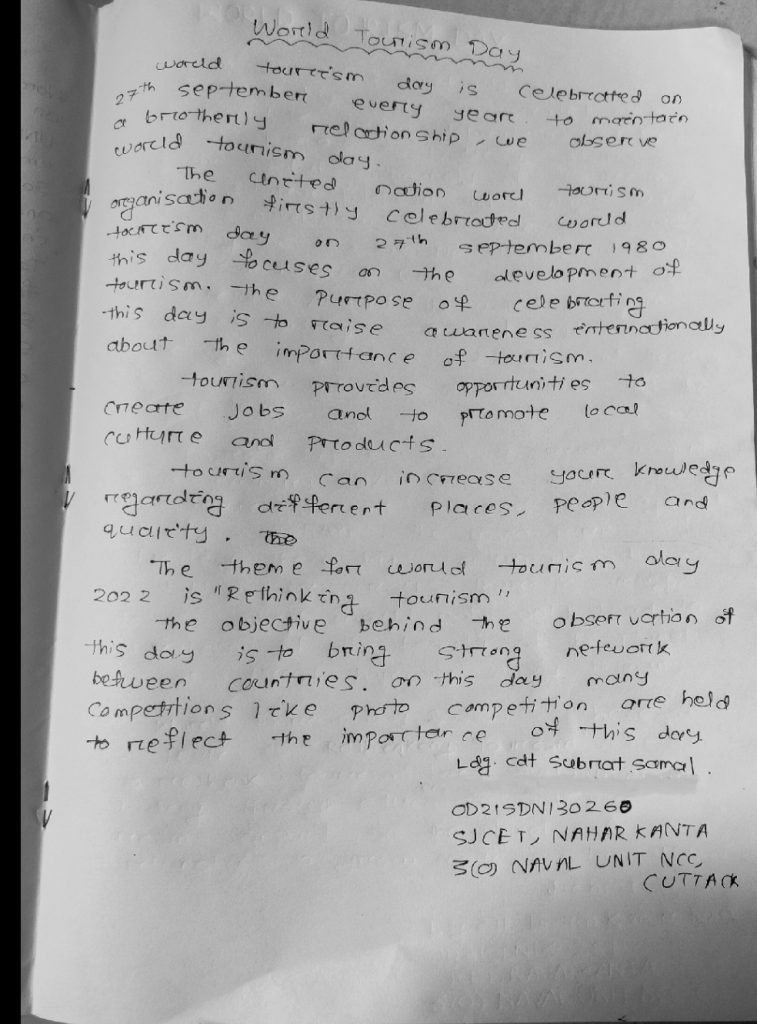 World Tourism Day
world tourism day is celebrated on
27th september every year. to maintain
a brotherly relationship, we observe
world tourism day.
The united nation worl tourism
organisation firstly celebrated world
tourism day on 27th september 1980
this day focuses on the development of
tourism. the purpose of celebrating
this day is to raise awareness internationally
about the importance of tourism.
tourism provides opportunities to
create jobs and to promote local
culture and products.
tourism can increase your knowledge
regarding different places, people and
quality.
The theme for world tourism day
2022 is "Rethinking tourism"
the objective behind the observation of
this day is to bring strong network
between countries. on this day many
competitions like photo competition are held
to reflect the importance of this day
Ldg. cdt Subrat samal.
OD21SDN130260
SJCET, NAHARKANTA
3(O) NAVAL UNIT NCC,
CUTTACK